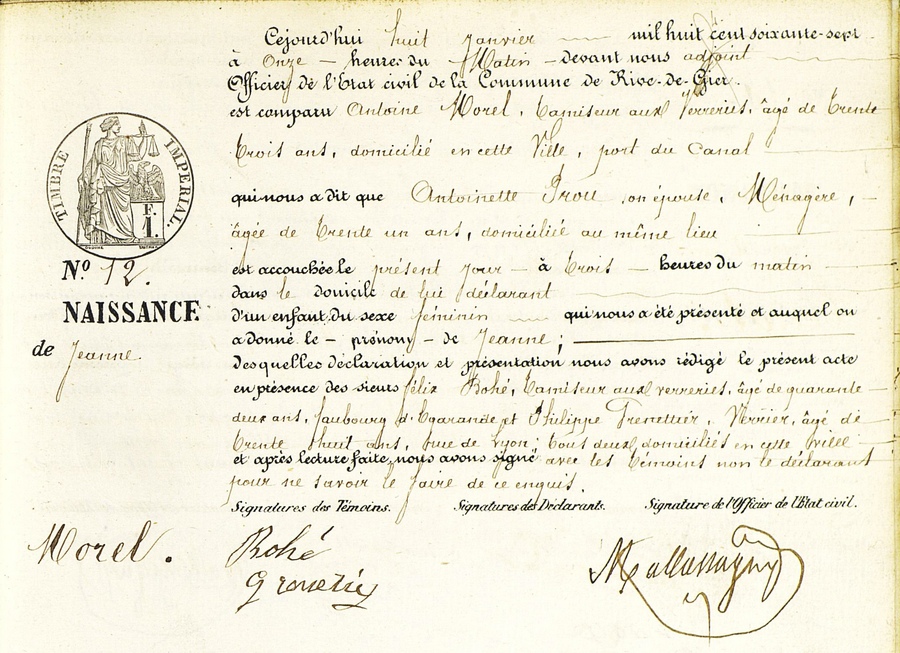 Cejourd'hui huit Janvier mil huit cent soixante-sept
à Onze heures du Matin devant nous adjoint
Officier de l'Etat civil de la Commune de Rive-de-Gier
est comparu Antoine Morel, Tamiseur aux Verreries, âgé de trente
trois ans, domicilié en cette Ville, port du Canal
qui nous a dit que Antoinette son épouse, Ménagère,
âgée de trente un ans, domiciliée au même lieu
est accouchée le présent jour à trois heures du matin
dans le domicile de lui déclarant
d'un enfant du sexe féminin qui nous a été présenté et auquel on
a donné le prénom de Jeanne ;
desquelles déclaration et présentation nous avons rédigé le présent acte
en présence des sieurs félix Bohé, Tamiseur aux verreries, âgé de quarante
deux ans, faubourg d'Egarande et Philippe Verrier, âgé de
trente huit ans, rue de Lyon ; tous deux domiciliés en cette ville
et après lecture faite, nous avons signé avec les témoins non le déclarant
pour ne savoir le faire de ce enquis.
TIMBRE IMPERIAL.
F.
1.
No 12.
NAISSANCE
de Jeanne
Morel.
Signatures des Témoins. Signatures des Déclarants. Signature de l'Officier de l'Etat civil.
Bohé